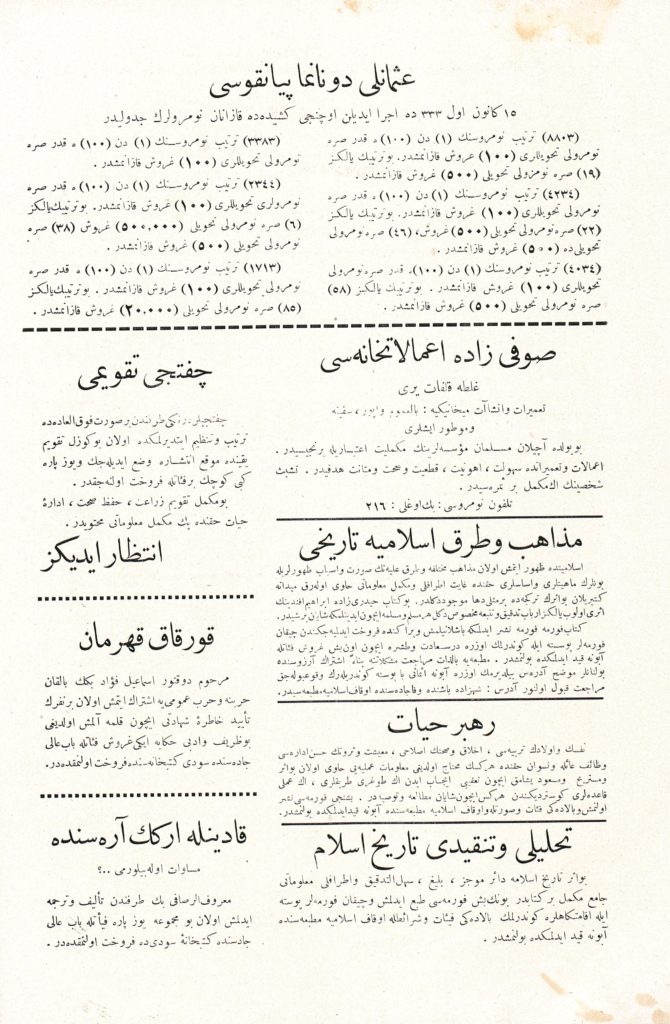 عثمانلى دونانما پیانقوسى
١٥ كانون اول ٣٣٣ ده اجرا ایدیلن اوچنجى كشیده‌ده قازانان نومرولرك جدولیدر
(٨٨٠٣) ترتیب نومروسنك (١) دن (١٠٠) ه قدر صره
نومرولى تحویللرى (١٠٠) غروش قازانمشدر. بوترتیبك یالكز
(١٩) صره نومرولى تحویلى (٥٠٠) غروش قازانمشدر.
(٤٢٣٤) ترتیب نومروسنك (١) دن (١٠٠) ه قدر صره
نومرولى تحویللرى (١٠٠) غروش قازانمشدر. بوترتیبك یالكز
(٢٢) صره نومرولى تحویلى (٥٠٠) غروش، (٤٦) صره نومرولى
تحویلى ده (٥٠٠) غروش قازانمشدر.
(٤٠٣٤) ترتیب نومروسنك (١) دن (١٠٠) ه قدر صره نومرولى
تحویللرى (١٠٠) غروش قازانمشدر. بوترتیبك یالكز (٥٨)
صره نومرولى تحویلى (٥٠٠) غروش قازانمشدر.
(٣٣٨٣) ترتیب نومروسنك (١) دن (١٠٠) ه قدر صره
نومرولى تحویللرى (١٠٠) غروش قازانمشدر.
(٢٣٤٤) ترتیب نومروسنك (١) دن (١٠٠) ه قدر صره
نومرولرى تحویللرى (١٠٠) غروش قازانمشدر. بوترتیبك یالكز
(٦) صره نومرولى تحویلى (٥٠٠,٠٠٠) غروش (٣٨) صره
نومرولى تحویلى (٥٠٠) غروش قازانمشدر.
(١٧١٣) ترتیب نومروسنك (١) دن (١٠٠) ه قدر صره
نومرولى تحویللرى (١٠٠) غروش قازانمشدر. بوترتیبك یالكز
(٨٥) صره نومرولى تحویلى (٢٠,٠٠٠) غروش قازانمشدر.
صوفى زاده اعمالاتخانه‌سى
غلطه قلفات یرى
تعمیرات وانشاآت میخانیكیه: بالعموم واپور، سفینه
وموطور ایشلرى
بو یولده آچیلان مسلمان مؤسسه‌لرینك مكملیت اعتباریله برنجیسیدر.
اعمالات وتعمیراتده سهولت، اهونیت، قطعیت وصحت ومتانت هدفیدر. تشبث
شخصینك اك مكمل بر ثمره‌سیدر.
تلفون نومروسى: بك اوغلى: ٢١٦
مذاهب وطرق اسلامیه تاریخى
اسلامیتده ظهور ایتمش اولان مذاهب مختلفه وطرق علیه‌نك صورت واسباب ظهورلریله
بونلرك ماهیتلرى واساسلرى حقنده غایت اطرافلى ومكمل معلوماتى حاوى اوله‌رق میدانه
كتیریلان بو اثرك تركجه‌ده بر مثلى دها موجود دكلدر. بو كتاب حیدرى زاده ابراهیم افندینك
اثرى اولوب یالكز ارباب تدقیق وتتبعه مخصوص دكل هر مسلم ومسلمه ایچون ایدینلمكه شایان بر اثردر.
كتاب فورمه فورمه نشر ایدلمكه باشلانیلمش و پراكنده فروخت ایدلیه‌جكندن چیقان
فورمه‌لر پوسته ایله كوندرلمك اوزره درسعادت وطشره ایچون اون بش غروش فئاتله
آبونه قید ایدلمكده بولنمشدر. مطبعه‌یه بالذات مراجعت مشكلاتنه بناءً اشتراك آرزوسنده
بولنانلر موضح آدرس بیلدیرمك اوزره آبونه اثمانى با پوسته كوندریله‌رك وقوعبوله‌جق
مراجعت قبول اولنور. آدرس: شهزاده باشنده وفا جاده‌سنده اوقاف اسلامیه مطبعه‌سیدر.
رهبر حیات
نفسك واولادك تربیه‌سى، اخلاق وصحتك اصلاحى، معیشت وثروتك حسن اداره‌سى
وظائف عائله ونسوان حقنده هركسك محتاج اولدیغى معلومات عملیه‌یى حاوى اولان بواثر
ومستریح ومسعود یشامق ایچون تعقیبى ایجاب ایدن اك طوغرى طریقلرى، اك عملى
قاعده‌لرى كوستردیكندن هركس ایچون شایان مطالعه وتوصیه‌در. بشنجى فورمه‌سى نشر
اولنمش وبالاده‌كى فئات وصورتله اوقاف اسلامیه مطبعه‌سنده آبونه قید ایدلمكده بولنمشدر.
تحلیلى وتنقیدى تاریخ اسلام
بواثر تاریخ اسلامه دائر موجز، بلیغ، سهل التدقیق واطرافلى معلوماتى
جامع مكمل بر كتابدر. یونك بش فورمه‌سى طبع ایدلمش وچیقان فورمه‌لر پوسته
ایله اقامتكاهلره كوندرلمك بالاده‌كى فیئات وشرائطله اوقاف اسلامیه مطبعه‌سنده
آبونه قید ایدلمكده بولنمشدر.
چفتجى تقویمى
چفتجیلر درنكى طرفندن بر صورت فوق العاده‌ده
ترتیب وتنظیم ایتدیرلمكده اولان بو كوزل تقویم
یقینده موقع انتشاره وضع ایدیله‌جك ویوز پاره
كبى كوچك بر فئاتله فروخت اولنه‌جقدر.
بومكمل تقویم زراعت، حفظ صحت، ادارهٔ
حیات حقنده پك مكمل معلوماتى محتویدر.
انتظار ایدیكز
قورقاق قهرمان
مرحوم دوقتور اسماعیل فؤاد بكك بالقان
حربنه وحرب عمومى‌یه اشتراك ایتمش اولان بر نفرك
تأیید خاطرهٔ شهادتى ایچون قلمه آلمش اولدیغى
بو ظریف وادبى حكایه ایكى غروش فئاتله باب عالى
جاده‌سنده سودى كتبخانه‌سنده فروخت اولنمقده‌در.
قادینله اركك آره‌سنده
مساوات اوله بیلورمى ..؟
معروف الرصافى بك طرفندن تألیف وترجمه
ایدلمش اولان بو مجموعه یوز پاره فیأتله باب عالى
جاده‌سنده كتبخانهٔ سودى‌ده فروخت اولنمقده‌در.